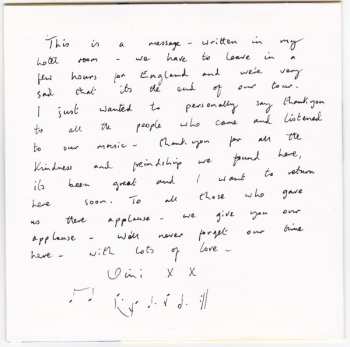 This is a message - written in my
hotel room - we have to leave in a
few hours for England and we're very
sad that it's the end of our tour.
I just wanted to personally say thankyou
to all the people who came and listened
to our music - thankyou for all the
kindness and freindship we found here,
it's been great and I want to return
here soon. To all those who gave
us there applause - we give you our
applause - we'll never forget our time
here - with lots of love -
Vini X X